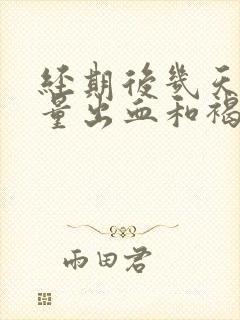 經期後幾天
量出血和褐
雨田君